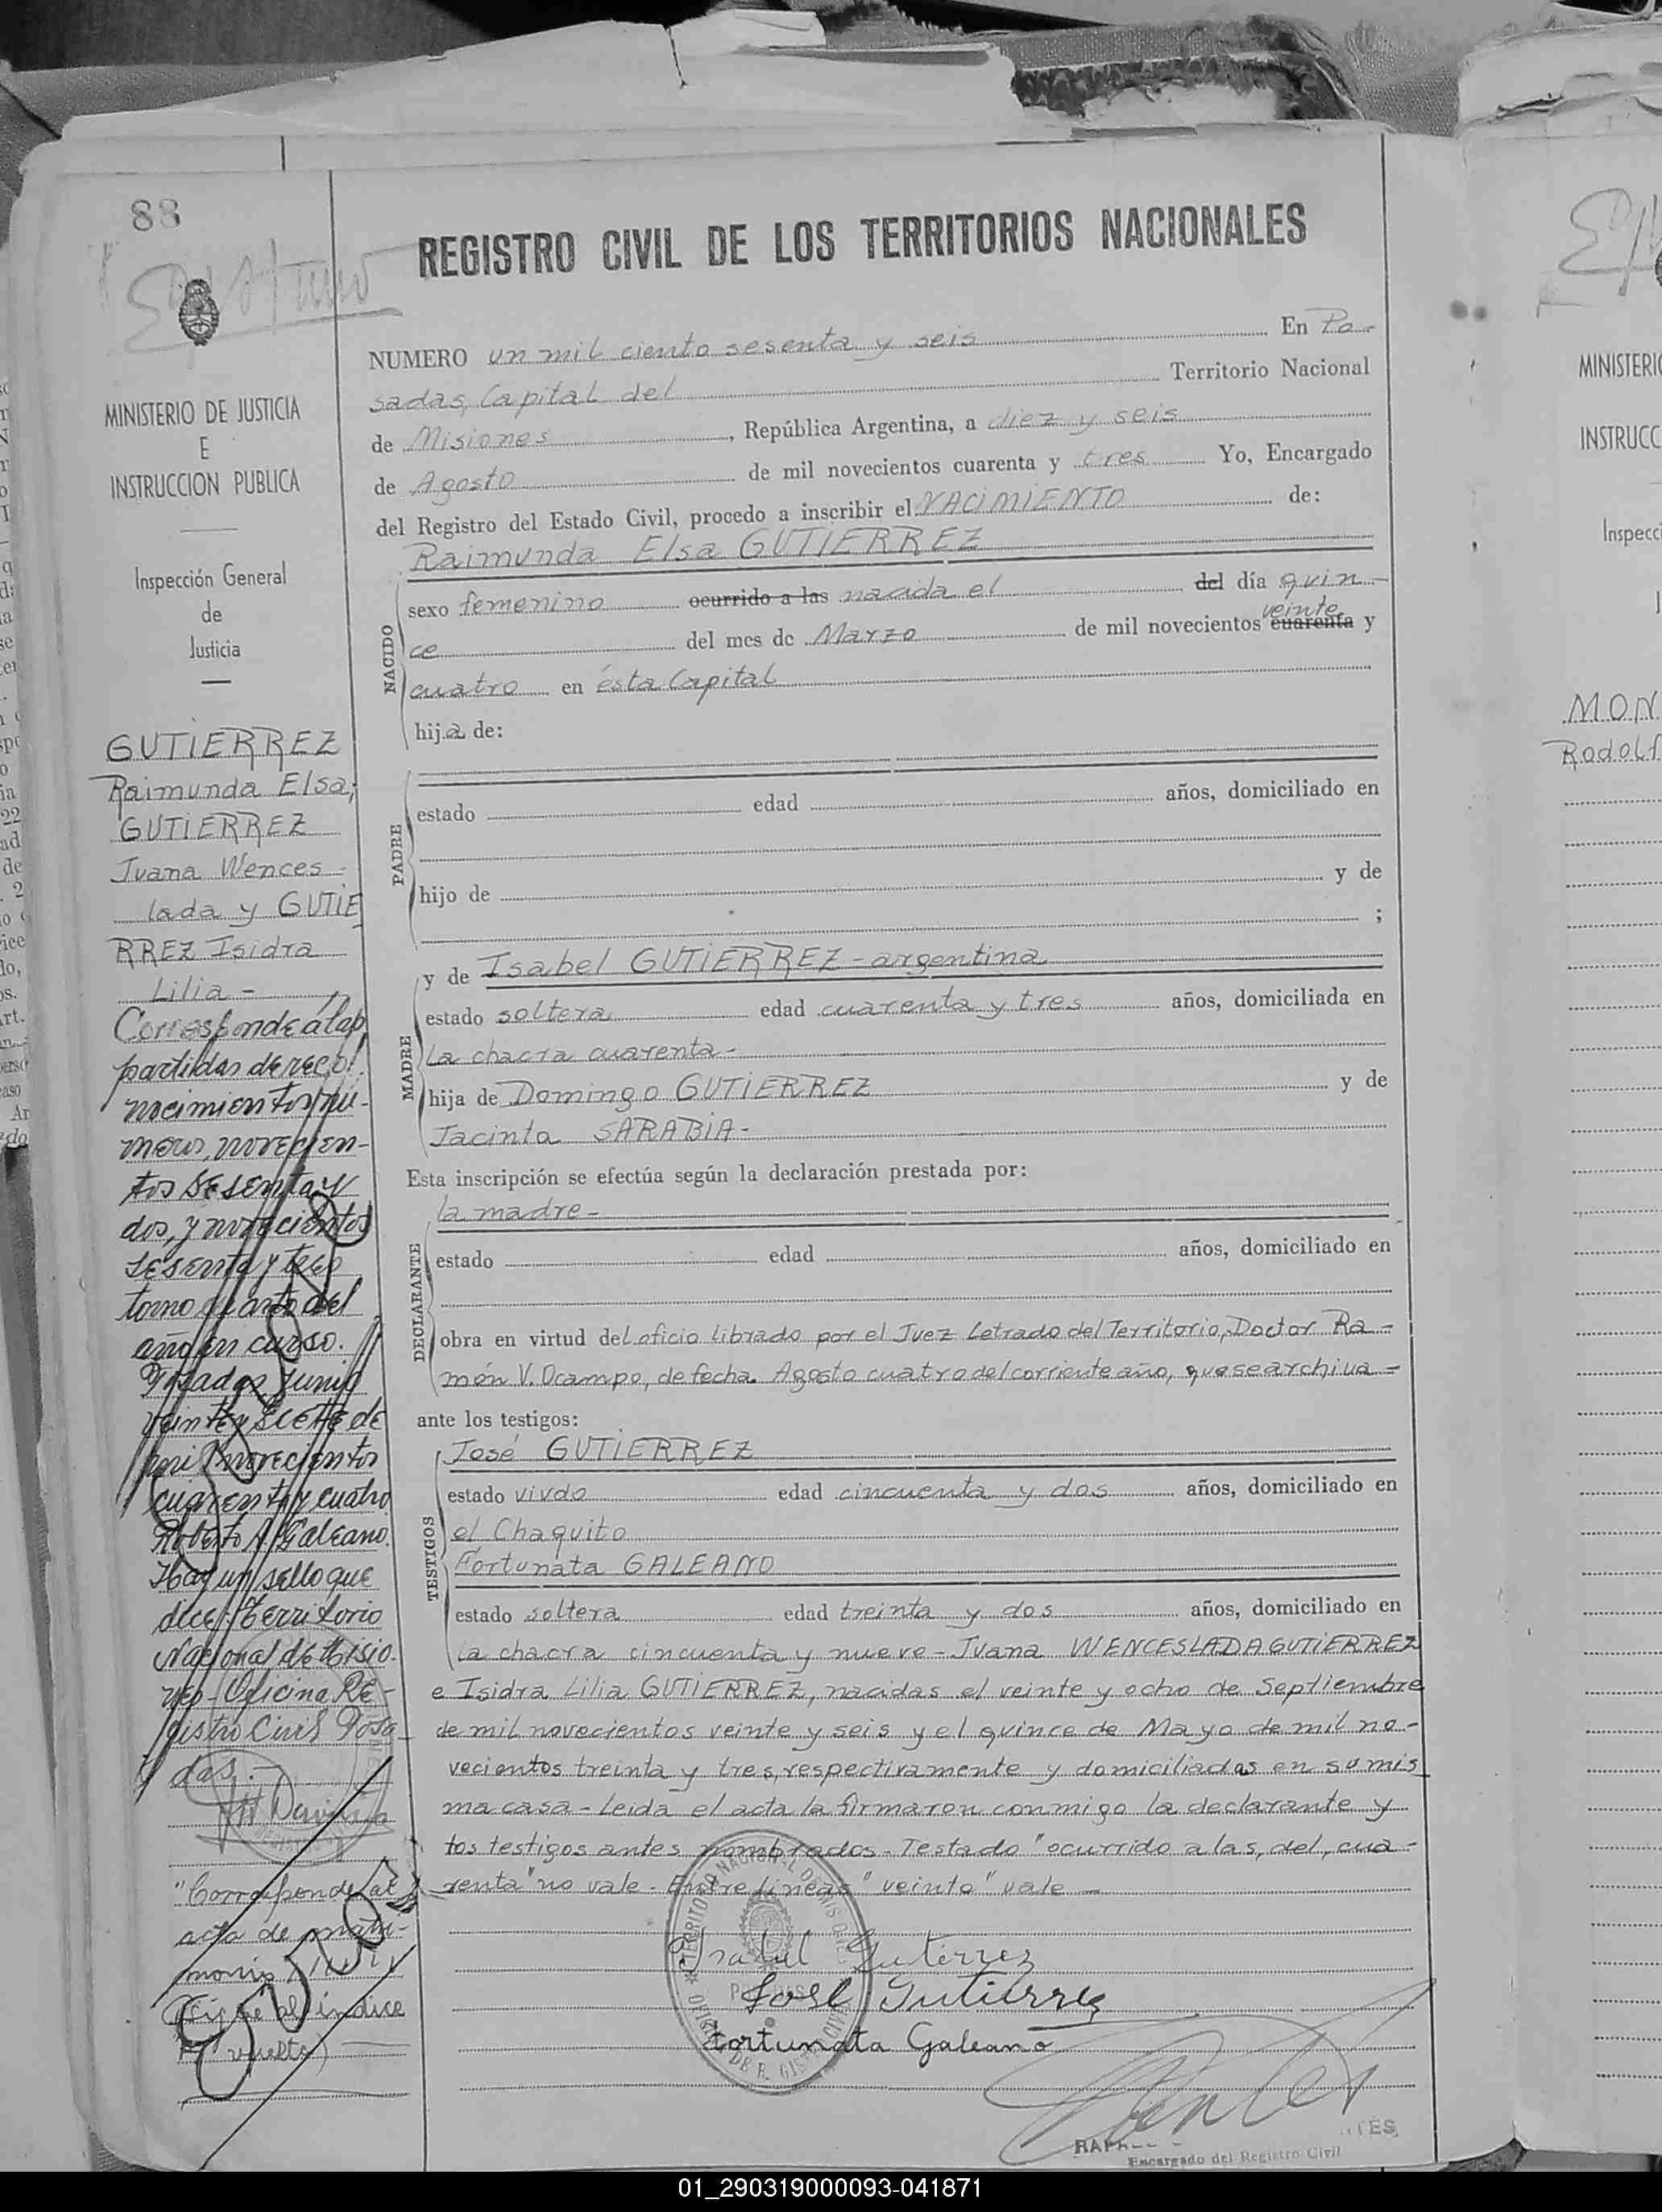 88
REGISTRO CIVIL DE LOS TERRITORIOS NACIONALES
MINISTERIO DE JUSTICIA
E
INSTRUCCION PUBLICA
Inspección General
de
Justicia
GUTIERREZ
Raimunda Elsa;
GUTIERREZ
Juana Wences
lada y GUTIE
RREZ Isidra
Lilia -
Corresponde á las
partidas de reco-
nocimientos nú-
meros, novecien-
tos sesenta y
dos, y novecientos
sesenta y tres
tomo cuarto del
año en curso.
Posadas, Junio
veinte y siete de
mil novecientos
cuarenta y cuatro
Roberto A. Galeano.
Hay un sello que
dice: Territorio
Nacional de Misio-
nes - Oficina Re-
gistro Civil Posa-
das.-
"Corresponde al
acta de matri-
monio
(Sigue al índice
vuelta)
NUMERO un mil ciento sesenta y seis En Po-
sadas, Capital del Territorio Nacional
de Misiones, República Argentina, a diez y seis
de Agosto de mil novecientos cuarenta y tres Yo, Encargado
del Registro del Estado Civil, procedo a inscribir el NACIMIENTO de:
Raimunda Elsa GUTIERREZ
NACIDO
sexo femenino ocurrido a las nacida el del día quin-
veinte
ce del mes de Marzo de mil novecientos cuarenta y
cuatro en ésta Capital
hija de:
PADRE
estado edad años, domiciliado en
hijo de y de
;
MADRE
y de Isabel GUTIERREZ - argentina
estado soltera edad cuarenta y tres años, domiciliada en
La chacra cuarenta-
hija de Domingo GUTIERREZ y de
Jacinta SARABIA-
Esta inscripción se efectúa según la declaración prestada por:
DECLARANTE
la madre-
estado edad años, domiciliado en
obra en virtud del oficio librado por el Juez Letrado del Territorio, Doctor Ra-
món V. Ocampo, de fecha Agosto cuatro del corriente año, que se archiva-
ante los testigos:
TESTIGOS
José GUTIERREZ
estado viudo edad cincuenta y dos años, domiciliado en
el Chaquito
Fortunata GALEANO
estado soltera edad treinta y dos años, domiciliado en
la chacra cincuenta y nueve - Juana WENCESLADA GUTIERREZ
e Isidra Lilia GUTIERREZ, nacidas el veinte y ocho de Septiembre
de mil novecientos veinte y seis y el quince de Mayo de mil no-
vecientos treinta y tres, respectivamente y domiciliadas en su mis
ma casa - Leida el acta la firmaron conmigo la declarante y
los testigos antes nombrados - Testado "ocurrido a las, del, cua-
renta" no vale - Entre lineas "veinte" vale -
Isabel Gutierrez
José Gutierrez
fortunata Galeano
Encargado del Registro Civil
MINISTERI
INSTRUCC
Inspecc
MON
Rodolf
01_290319000093-041871